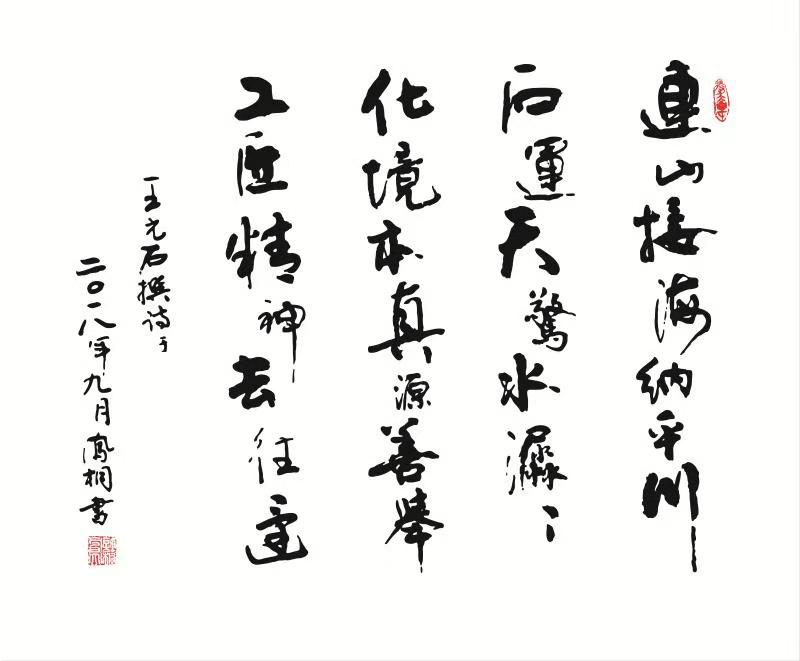 連山接海納平川
石運天驚水
化境本真源善舉
工匠精神去往
王元石撰詩于
二〇一八年九月鳳桐書